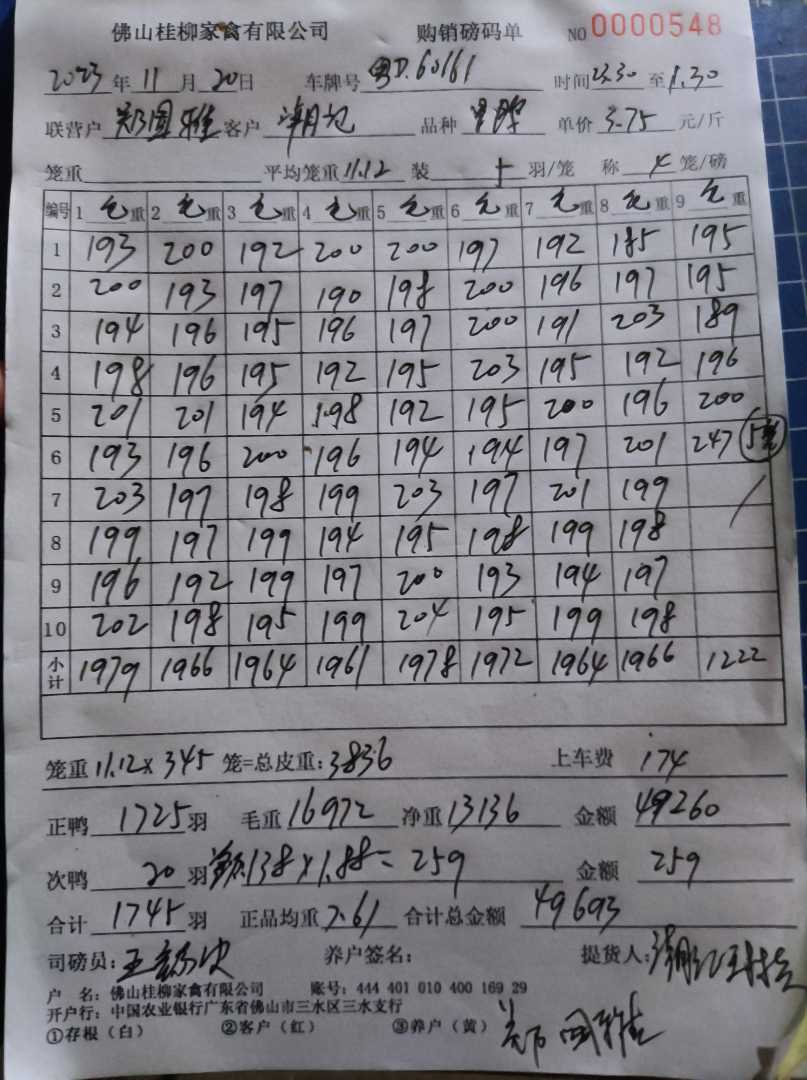 佛山桂柳家禽有限公司 购销磅码单 NO 0000548
2023年11月20日 车牌号 粤D.60161 时间23.30至1.30
联营户 郑国雅 客户 潮记 品种 单价 3.75 元/斤
笼重 平均笼重11.12 装 5 羽/笼 称 4 笼/磅
编号 1 毛重 2 毛重 3 毛重 4 毛重 5 毛重 6 毛重 7 毛重 8 毛重 9 毛重
1 193 200 192 200 200 197 192 185 195
2 200 193 197 190 198 200 196 197 195
3 194 196 195 196 197 200 191 203 189
4 198 196 195 192 195 203 195 192 196
5 201 201 194 198 192 195 200 196 200
6 193 196 200 196 194 194 197 201 247 5笼
7 203 197 198 199 203 197 201 199
8 199 197 199 194 195 198 199 198
9 196 192 199 197 200 193 194 197
10 202 198 195 199 204 195 199 198
小计 1979 1966 1964 1961 1978 1972 1964 1966 1222
笼重 11.12×345 笼=总皮重:3836 上车费 174
正鸭 1725羽 毛重16972 净重13136 金额 49260
次鸭 20 羽 138×1.88=259 金额 259
合计 1745 羽 正品均重7.61 合计总金额 49693
司磅员: 王 养户签名: 提货人:
户 名: 佛山桂柳家禽有限公司 账号: 444 401 010 400 169 29
开户行: 中国农业银行广东省佛山市三水区三水支行
①存根（白） ②客户（红） ③养户（黄） 郑国雅